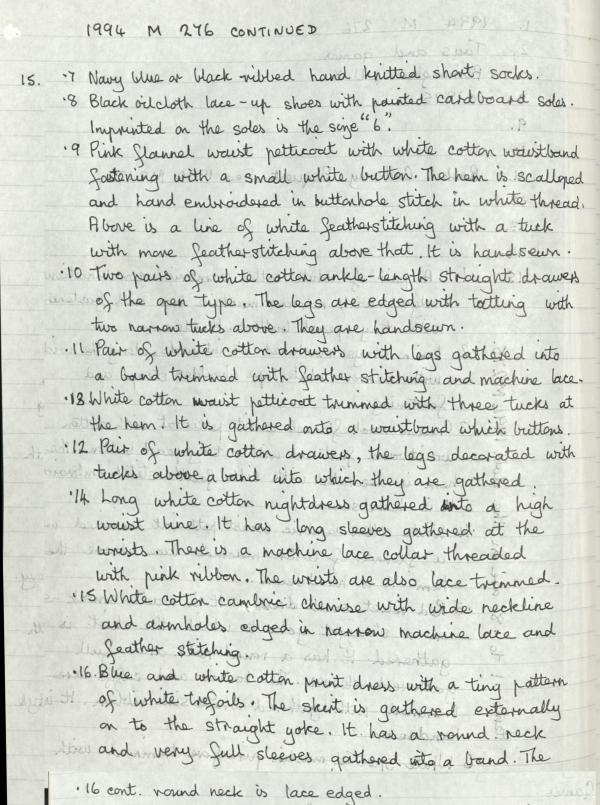 1994 M 276 CONTINUED
15. .7 Navy blue or black ribbed hand knitted short socks.
.8 Black oilcloth lace-up shoes with painted cardboard soles.
Imprinted on the soles is the size "6".
.9 Pink flannel waist petticoat with white cotton waistband
fastening with a small white button. The hem is scalloped
and hand embroidered in buttonhole stitch in white thread.
Above is a line of white featherstitching with a tuck
with more featherstitching above that. It is handsewn.
.10 Two pairs of white cotton ankle-length straight drawers
of the open type. The legs are edged with tatting with
two narrow tucks above. They are handsewn.
.11 Pair of white cotton drawers with legs gathered into
a band trimmed with feather stitching and machine lace.
.13 White cotton waist petticoat trimmed with three tucks at
the hem. It is gathered onto a waistband which buttons.
.12 Pair of white cotton drawers, the legs decorated with
tucks above a band into which they are gathered.
.14 Long white cotton nightdress gathered into a high
waist line. It has long sleeves gathered at the
wrists. There is a machine lace collar threaded
with pink ribbon. The wrists are also lace trimmed.
.15 White cotton cambric chemise with wide neckline
and armholes edged in narrow machine lace and
feather stitching.
.16. Blue and white cotton print dress with a tiny pattern
of white trefoils. The skirt is gathered externally
on to the straight yoke. It has a round neck
and very full sleeves gathered into a band. The
.16 cont. round neck is lace edged.